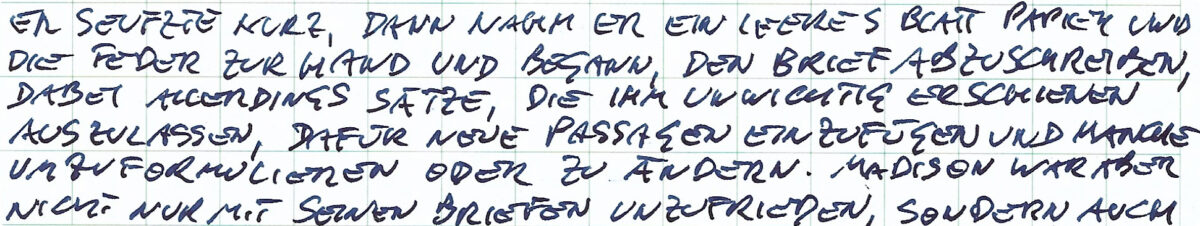 ER SEUFZTE KURZ, DANN NAHM ER EIN LEERES BLATT PAPIER UND
DIE FEDER ZUR HAND UND BEGANN, DEN BRIEF ABZUSCHREIBEN,
DABEI ALLERDINGS SÄTZE, DIE IHM UNWICHTIG ERSCHIENEN
AUSZULASSEN, DAFÜR NEUE PASSAGEN EINZUFÜGEN UND MANCHE
UMZUFORMULIEREN ODER ZU ÄNDERN. MADISON WAR ABER
NICHT NUR MIT SEINEN BRIEFEN UNZUFRIEDEN, SONDERN AUCH